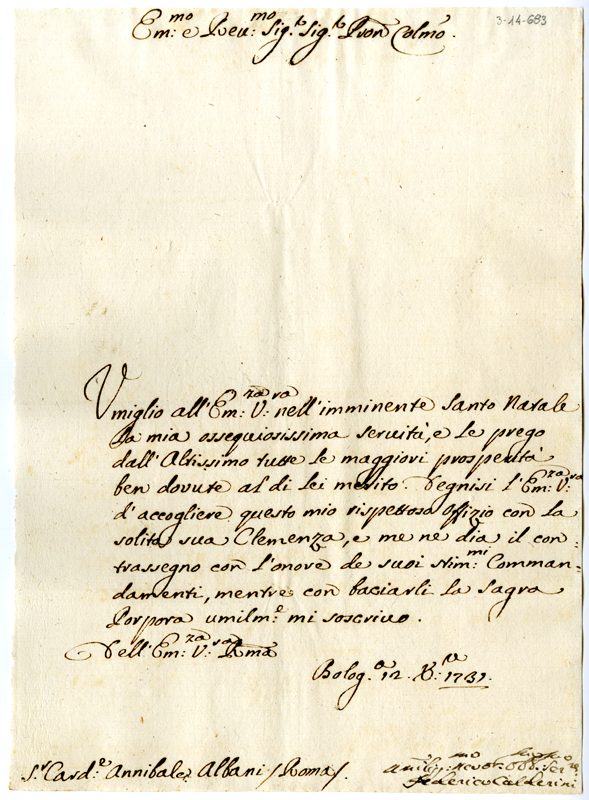 3-14-683
Em:mo e Reu:mo Sig.r Sig.r Pron Colmo.
Umiglio all'Em:za V:ra nell'imminente Santo Natale
la mia ossequiosissima seruitù, e le prego
dall'Altissimo tutte le maggiori prosperità
ben dovute al di lei merito. Degnisi l'Em:za V:ra
d'accogliere questo mio rispettoso offizio con la
solita sua Clemenza, e me ne dia il con:
trassegno con l'onore de suoi stim:mi Comman:
damenti, mentre con baciarli la Sagra
Porpora umilm:e mi soscriuo.
Dell'Em:za V:ra Rma
Bolog.a 12. X:re 1731.
S.r Card:e Annibale Albani /Roma/
Federico Calderini